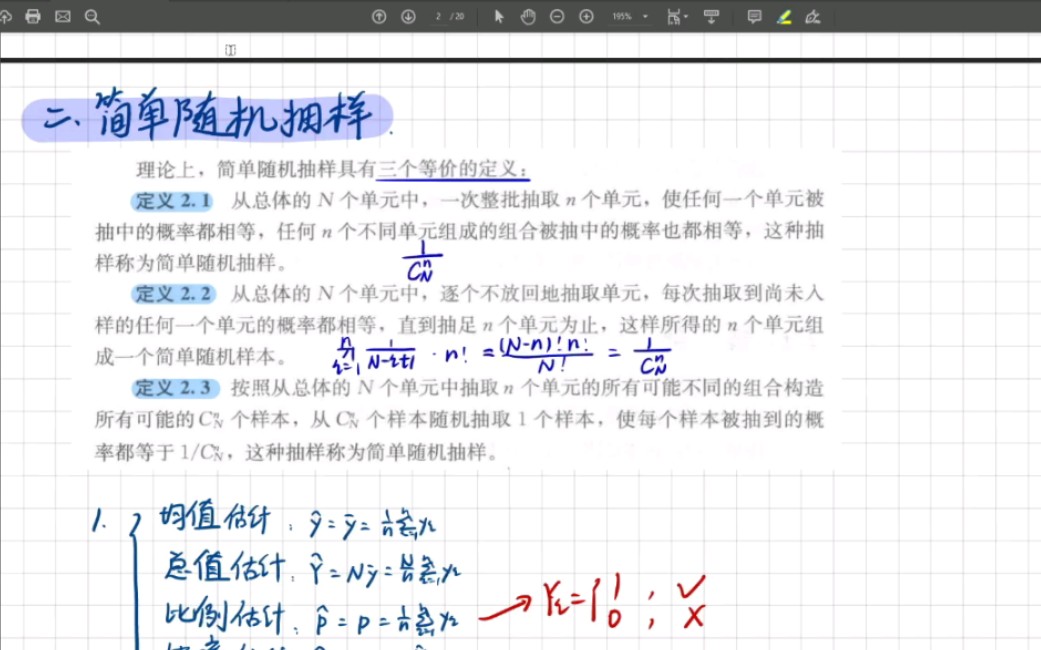 2 /20
195%
二、简单随机抽样
理论上，简单随机抽样具有三个等价的定义：
定义 2.1 从总体的 N 个单元中，一次整批抽取 n 个单元，使任何一个单元被
抽中的概率都相等，任何 n 个不同单元组成的组合被抽中的概率也都相等，这种抽
样称为简单随机抽样。
1/C_N^n
定义 2.2 从总体的 N 个单元中，逐个不放回地抽取单元，每次抽取到尚未入
样的任何一个单元的概率都相等，直到抽足 n 个单元为止，这样所得的 n 个单元组
成一个简单随机样本。 ∏_{i=1}^n 1/(N-i+1) · n! = (N-n)!n!/N! = 1/C_N^n
定义 2.3 按照从总体的 N 个单元中抽取 n 个单元的所有可能不同的组合构造
所有可能的 C_N^n 个样本，从 C_N^n 个样本随机抽取 1 个样本，使每个样本被抽到的概
率都等于 1/C_N^n，这种抽样称为简单随机抽样。
1. { 均值估计：ŷ = ȳ = 1/n ∑_{i=1}^n y_i
总值估计：Ŷ = Nȳ = N/n ∑_{i=1}^n y_i
比例估计：p̂ = p = 1/n ∑_{i=1}^n y_i → Y_i = { 1 ; ✓
0 ; ×